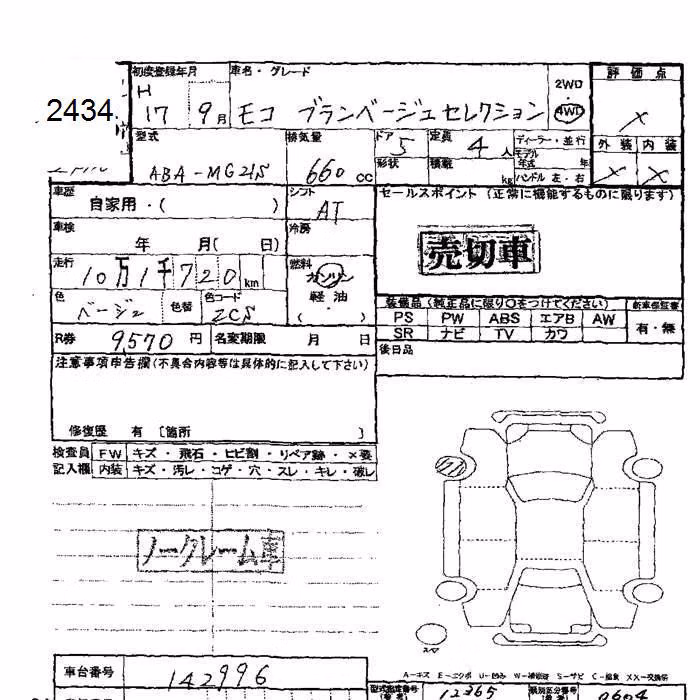 2434
初度登録年月 車名・グレード 評価点
H 17 9月 モコ ブランベージュセレクション 2WD・4WD ×
型式 排気量 ドア 定員 ディーラー・並行 外装 内装
ABA-MG21S 660cc 5 4人 モデル年式 年 × ×
形状 積載 kg ハンドル 左・右
車歴 シフト セールスポイント (正常に機能するものに限ります)
自家用・( ) AT
車検 冷房
年 月( 日) 売切車
走行 燃料
10万1千720km ガソリン
色 色替 色コード 軽油
ベージュ ZCS ( ・ )
装備品 (純正品に限り○をつけてください) 新車保証書
PS PW ABS エアB AW 有・無
SR ナビ TV カワ
R券 9,570円 名変期限 月 日
後日品
注意事項申告欄(不具合内容等は具体的に記入して下さい)
修復歴 有 〔箇所 〕
検査員 FW キズ・飛石・ヒビ割・リペア跡・×要
記入欄 内装 キズ・汚レ・コゲ・穴・スレ・キレ・破レ
ノークレーム車
スペア
A-キズ E-エクボ U-凹み W-補修跡 S-サビ C-腐食 XX-交換済
車台番号 142996
型式指定番号 12365 類別区分番号 0604